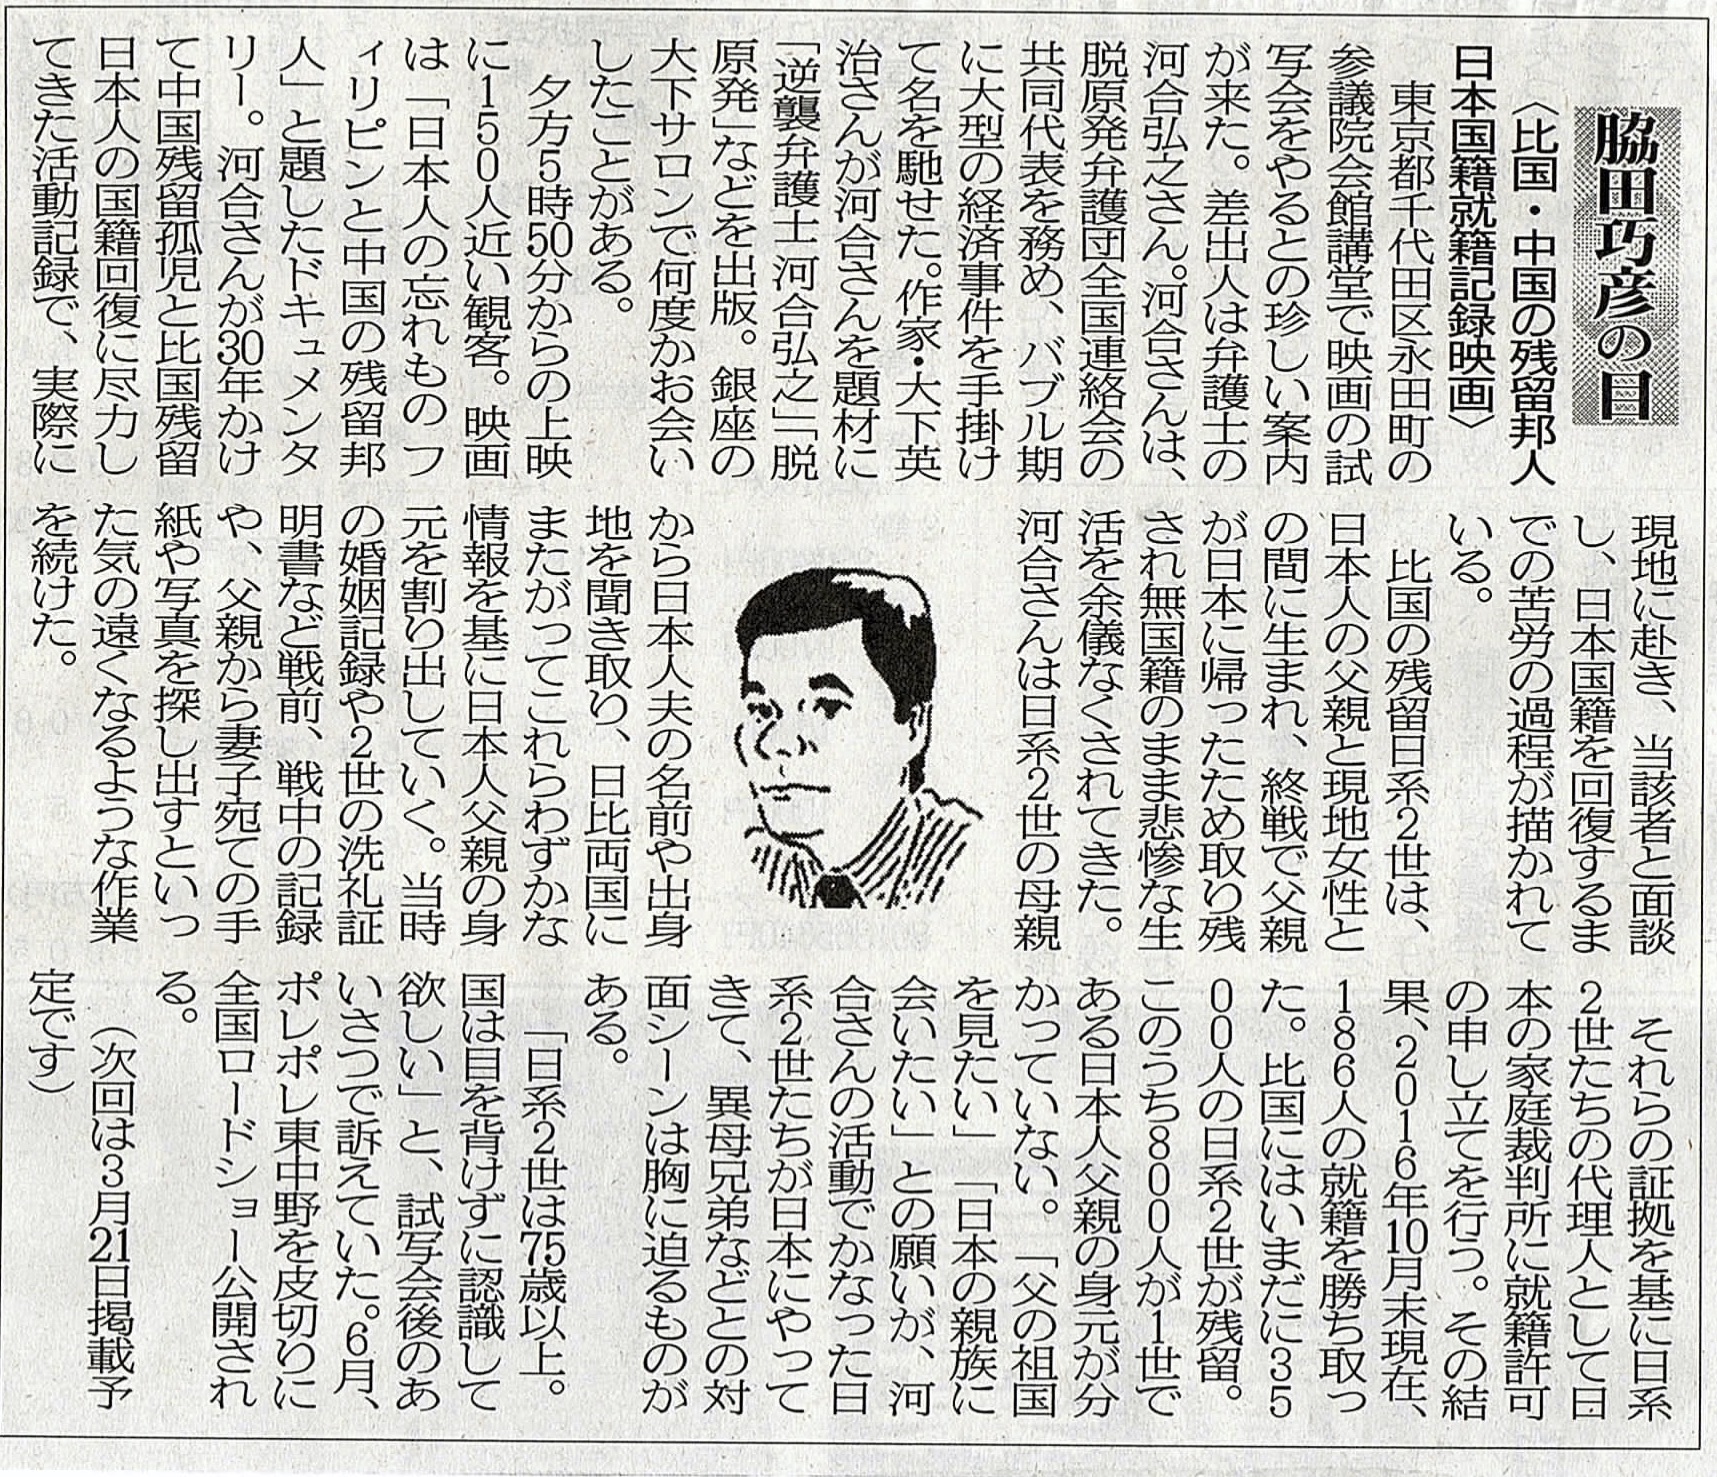 脇田巧彦の目
〈比国・中国の残留邦人
日本国籍就籍記録映画〉
東京都千代田区永田町の
参議院会館講堂で映画の試
写会をやるとの珍しい案内
が来た。差出人は弁護士の
河合弘之さん。河合さんは、
脱原発弁護団全国連絡会の
共同代表を務め、バブル期
に大型の経済事件を手掛け
て名を馳せた。作家・大下英
治さんが河合さんを題材に
「逆襲弁護士 河合弘之」「脱
原発」などを出版。銀座の
大下サロンで何度かお会い
したことがある。
夕方5時50分からの上映
に150人近い観客。映画
は「日本人の忘れもの フ
ィリピンと中国の残留邦
人」と題したドキュメンタ
リー。河合さんが30年かけ
て中国残留孤児と比国残留
日本人の国籍回復に尽力し
てきた活動記録で、実際に
現地に赴き、当該者と面談
し、日本国籍を回復するま
での苦労の過程が描かれて
いる。
比国の残留日系2世は、
日本人の父親と現地女性と
の間に生まれ、終戦で父親
が日本に帰ったため取り残
され無国籍のまま悲惨な生
活を余儀なくされてきた。
河合さんは日系2世の母親
から日本人夫の名前や出身
地を聞き取り、日比両国に
またがってこれらわずかな
情報を基に日本人父親の身
元を割り出していく。当時
の婚姻記録や2世の洗礼証
明書など戦前、戦中の記録
や、父親から妻子宛ての手
紙や写真を探し出すといっ
た気の遠くなるような作業
を続けた。
それらの証拠を基に日系
2世たちの代理人として日
本の家庭裁判所に就籍許可
の申し立てを行う。その結
果、2016年10月末現在、
186人の就籍を勝ち取っ
た。比国にはいまだに35
00人の日系2世が残留。
このうち800人が1世で
ある日本人父親の身元が分
かっていない。「父の祖国
を見たい」「日本の親族に
会いたい」との願いが、河
合さんの活動でかなった日
系2世たちが日本にやって
きて、異母兄弟などとの対
面シーンは胸に迫るものが
ある。
「日系2世は75歳以上。
国は目を背けずに認識して
欲しい」と、試写会後のあ
いさつで訴えていた。6月、
ポレポレ東中野を皮切りに
全国ロードショー公開され
る。
（次回は3月21日掲載予
定です）